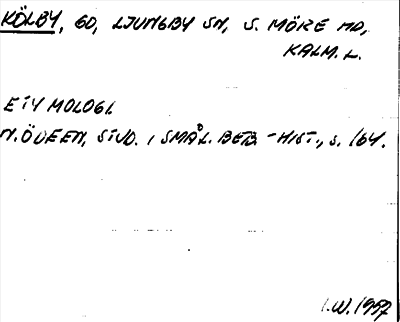 KÖLBY, GD, LJUNGBY SN, S. MÖRE HD,
KALM. L.
ETYMOLOGI.
N. ÖDEEN, STUD. I SMÅL. BEB.-HIST., S. 164.
I.W. 1957